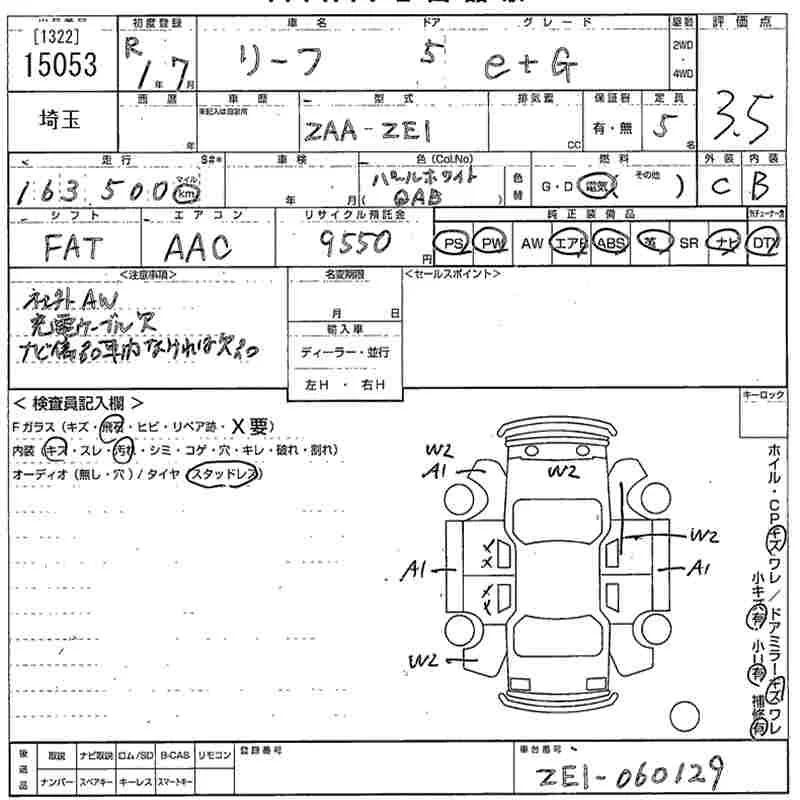 [1322]
15053
初度登録
R
1年 7月
車名
リーフ
ドア
5
グレード
e+G
駆動
2WD
・
4WD
評価点
3.5
埼玉
西暦
年
車歴
未記入は自家用
型式
ZAA-ZE1
排気量
CC
保証書
有・無
定員
5名
走行
163,500
マイル
km
S#*
車検
年 月
色(Col.No)
パールホワイト
(QAB)
色替
燃料
G・D 電気 (その他 )
外装
C
内装
B
シフト
FAT
エアコン
AAC
リサイクル預託金
9550円
純正装備品
PS PW AW エアB ABS 革 SR ナビ DT
<注意事項>
社外AW
充電ケーブル欠
名変期限
月 日
輸入車
ディーラー・並行
左H ・ 右H
<セールスポイント>
< 検査員記入欄 >
Fガラス (キズ・飛石・ヒビ・リペア跡・X要)
内装 (キズ・スレ・汚れ・シミ・コゲ・穴・キレ・破れ・割れ)
オーディオ (無し・穴) / タイヤ (スタッドレス)
キーロック
W2
A1
W2
W2
A1
A1
××
××
W2
ホイル・CPキズワレ/ドアミラーキズワレ
小キズ有 小U有 補修有
後送品
取説 ナビ取説 ロム/SD B-CAS リモコン
ナンバー スペアキー キーレス スマートキー
登録番号
車台番号
ZE1-060129